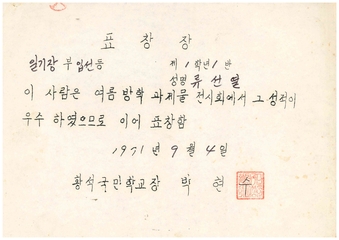 표창장
일기장 부 입선등
제 1 학년 1 반
성명 류선열
이 사람은 여름 방학 과제물 전시회에서 그 성적이
우수 하였으므로 이에 표창함
1971년 9월 4일
황석국민학교장 박현수